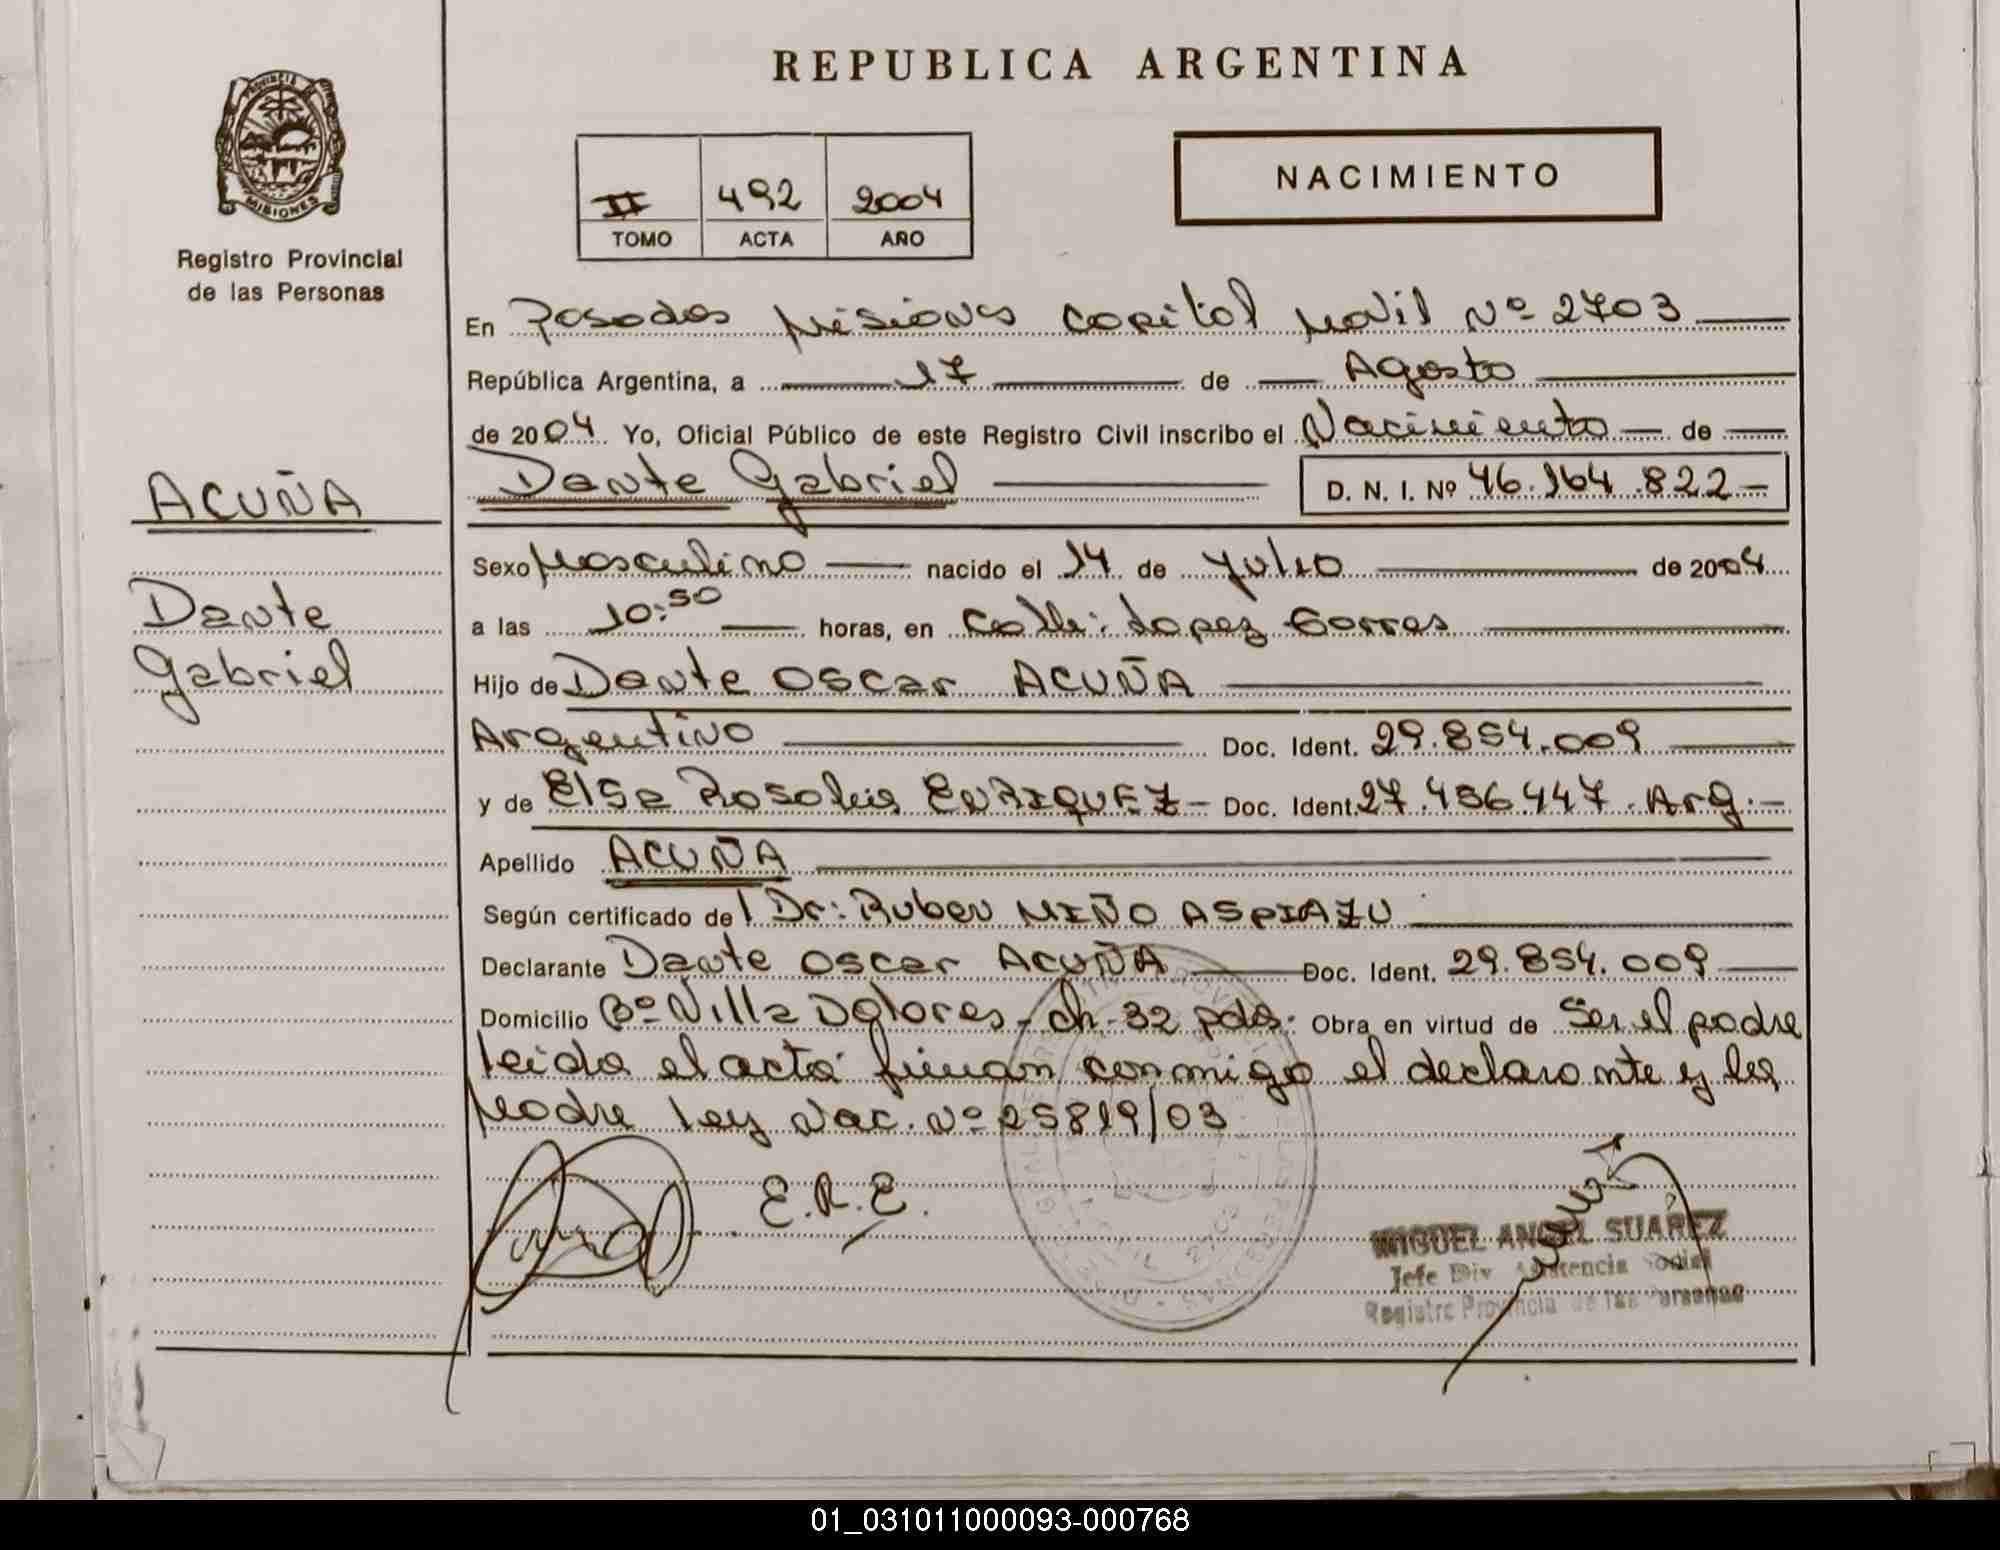 REPUBLICA ARGENTINA
PROVINCIA DE MISIONES
Registro Provincial
de las Personas
II 492 2004
TOMO ACTA AÑO
NACIMIENTO
En Posadas Misiones Capital Movil Nº 2703
República Argentina, a 17 de Agosto
de 2004 Yo, Oficial Público de este Registro Civil inscribo el Nacimiento de
ACUÑA
Dante Gabriel D. N. I. Nº 46.164.822
Sexo Masculino nacido el 14 de Julio de 2004
Dante
a las 10:50 horas, en Calle: Lopez Torres
Gabriel
Hijo de Dante Oscar ACUÑA
Argentino Doc. Ident. 29.854.009
y de Elsa Rosalia ENRIQUEZ - Doc. Ident. 27.456.447. Arg. -
Apellido ACUÑA
Según certificado del Dr: Ruben MIÑO ASPIAZU
Declarante Dante Oscar ACUÑA Doc. Ident. 29.854.009
Domicilio Bº Villa Dolores - ch - 32 pdas. Obra en virtud de Ser el padre
leida el acta firman conmigo el declarante y la
Madre ley Nac. Nº 25819/03
E.R.E.
MIGUEL ANGEL SUÁREZ
Jefe Div. Asistencia Social
Registro Provincial de las Personas
01_031011000093-000768